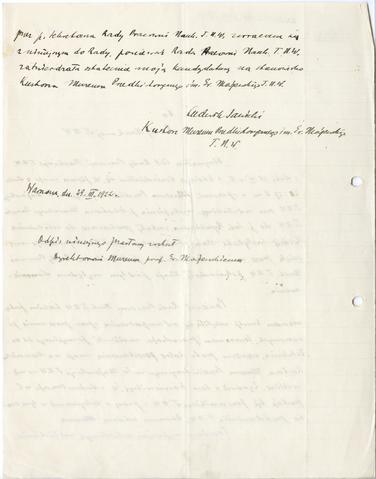 przez p. Sekretarza Rady Pracowni Nauk. T.N.W. zwracam się
z niniejszym do Rady, ponieważ Rada Pracowni Nauk. T.N.W.
zatwierdzała ostatecznie moją kandydaturę na stanowisko
Kustosza Muzeum Przedhistorycznego im. Er. Majewskiego T.N.W.
Ludwik Sawicki
Kustosz Muzeum Przedhistorycznego im. Er. Majewskiego
T.N.W.
Warszawa, dn. III. 192
Odpis niniejszego został
Dyrektorowi Muzeum prof. Er. Majewskiemu